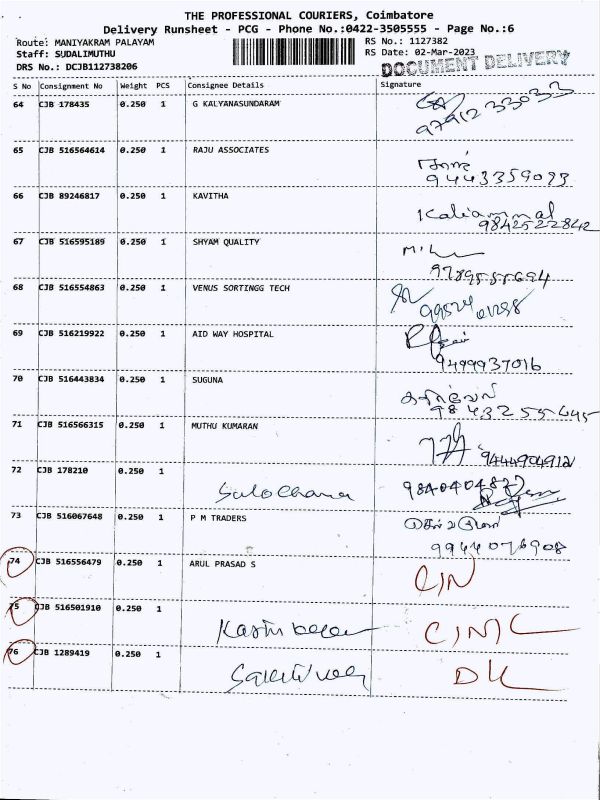 THE PROFESSIONAL COURIERS, Coimbatore
Delivery Runsheet - PCG - Phone No.:0422-3505555 - Page No.:6
Route: MANIYAKRAM PALAYAM RS No.: 1127382
Staff: SUDALIMUTHU RS Date: 02-Mar-2023
DRS No.: DCJB112738206 DOCUMENT DELIVERY
S No Consignment No Weight PCS Consignee Details Signature
64 CJB 178435 0.250 1 G KALYANASUNDARAM
97912 33033
65 CJB 516564614 0.250 1 RAJU ASSOCIATES
9443359093
66 CJB 89246817 0.250 1 KAVITHA
Kaliammal
9842522842
67 CJB 516595189 0.250 1 SHYAM QUALITY
9789555694
68 CJB 516554863 0.250 1 VENUS SORTINGG TECH
69 CJB 516219922 0.250 1 AID WAY HOSPITAL
9499937016
70 CJB 516443834 0.250 1 SUGUNA
98432 55645
71 CJB 516566315 0.250 1 MUTHU KUMARAN
9444904912
72 CJB 178210 0.250 1
Sulochana 9840404827
73 CJB 516067648 0.250 1 P M TRADERS
9944076908
74 CJB 516556479 0.250 1 ARUL PRASAD S
CIN
75 CJB 516501910 0.250 1
76 CJB 1289419 0.250 1
DL